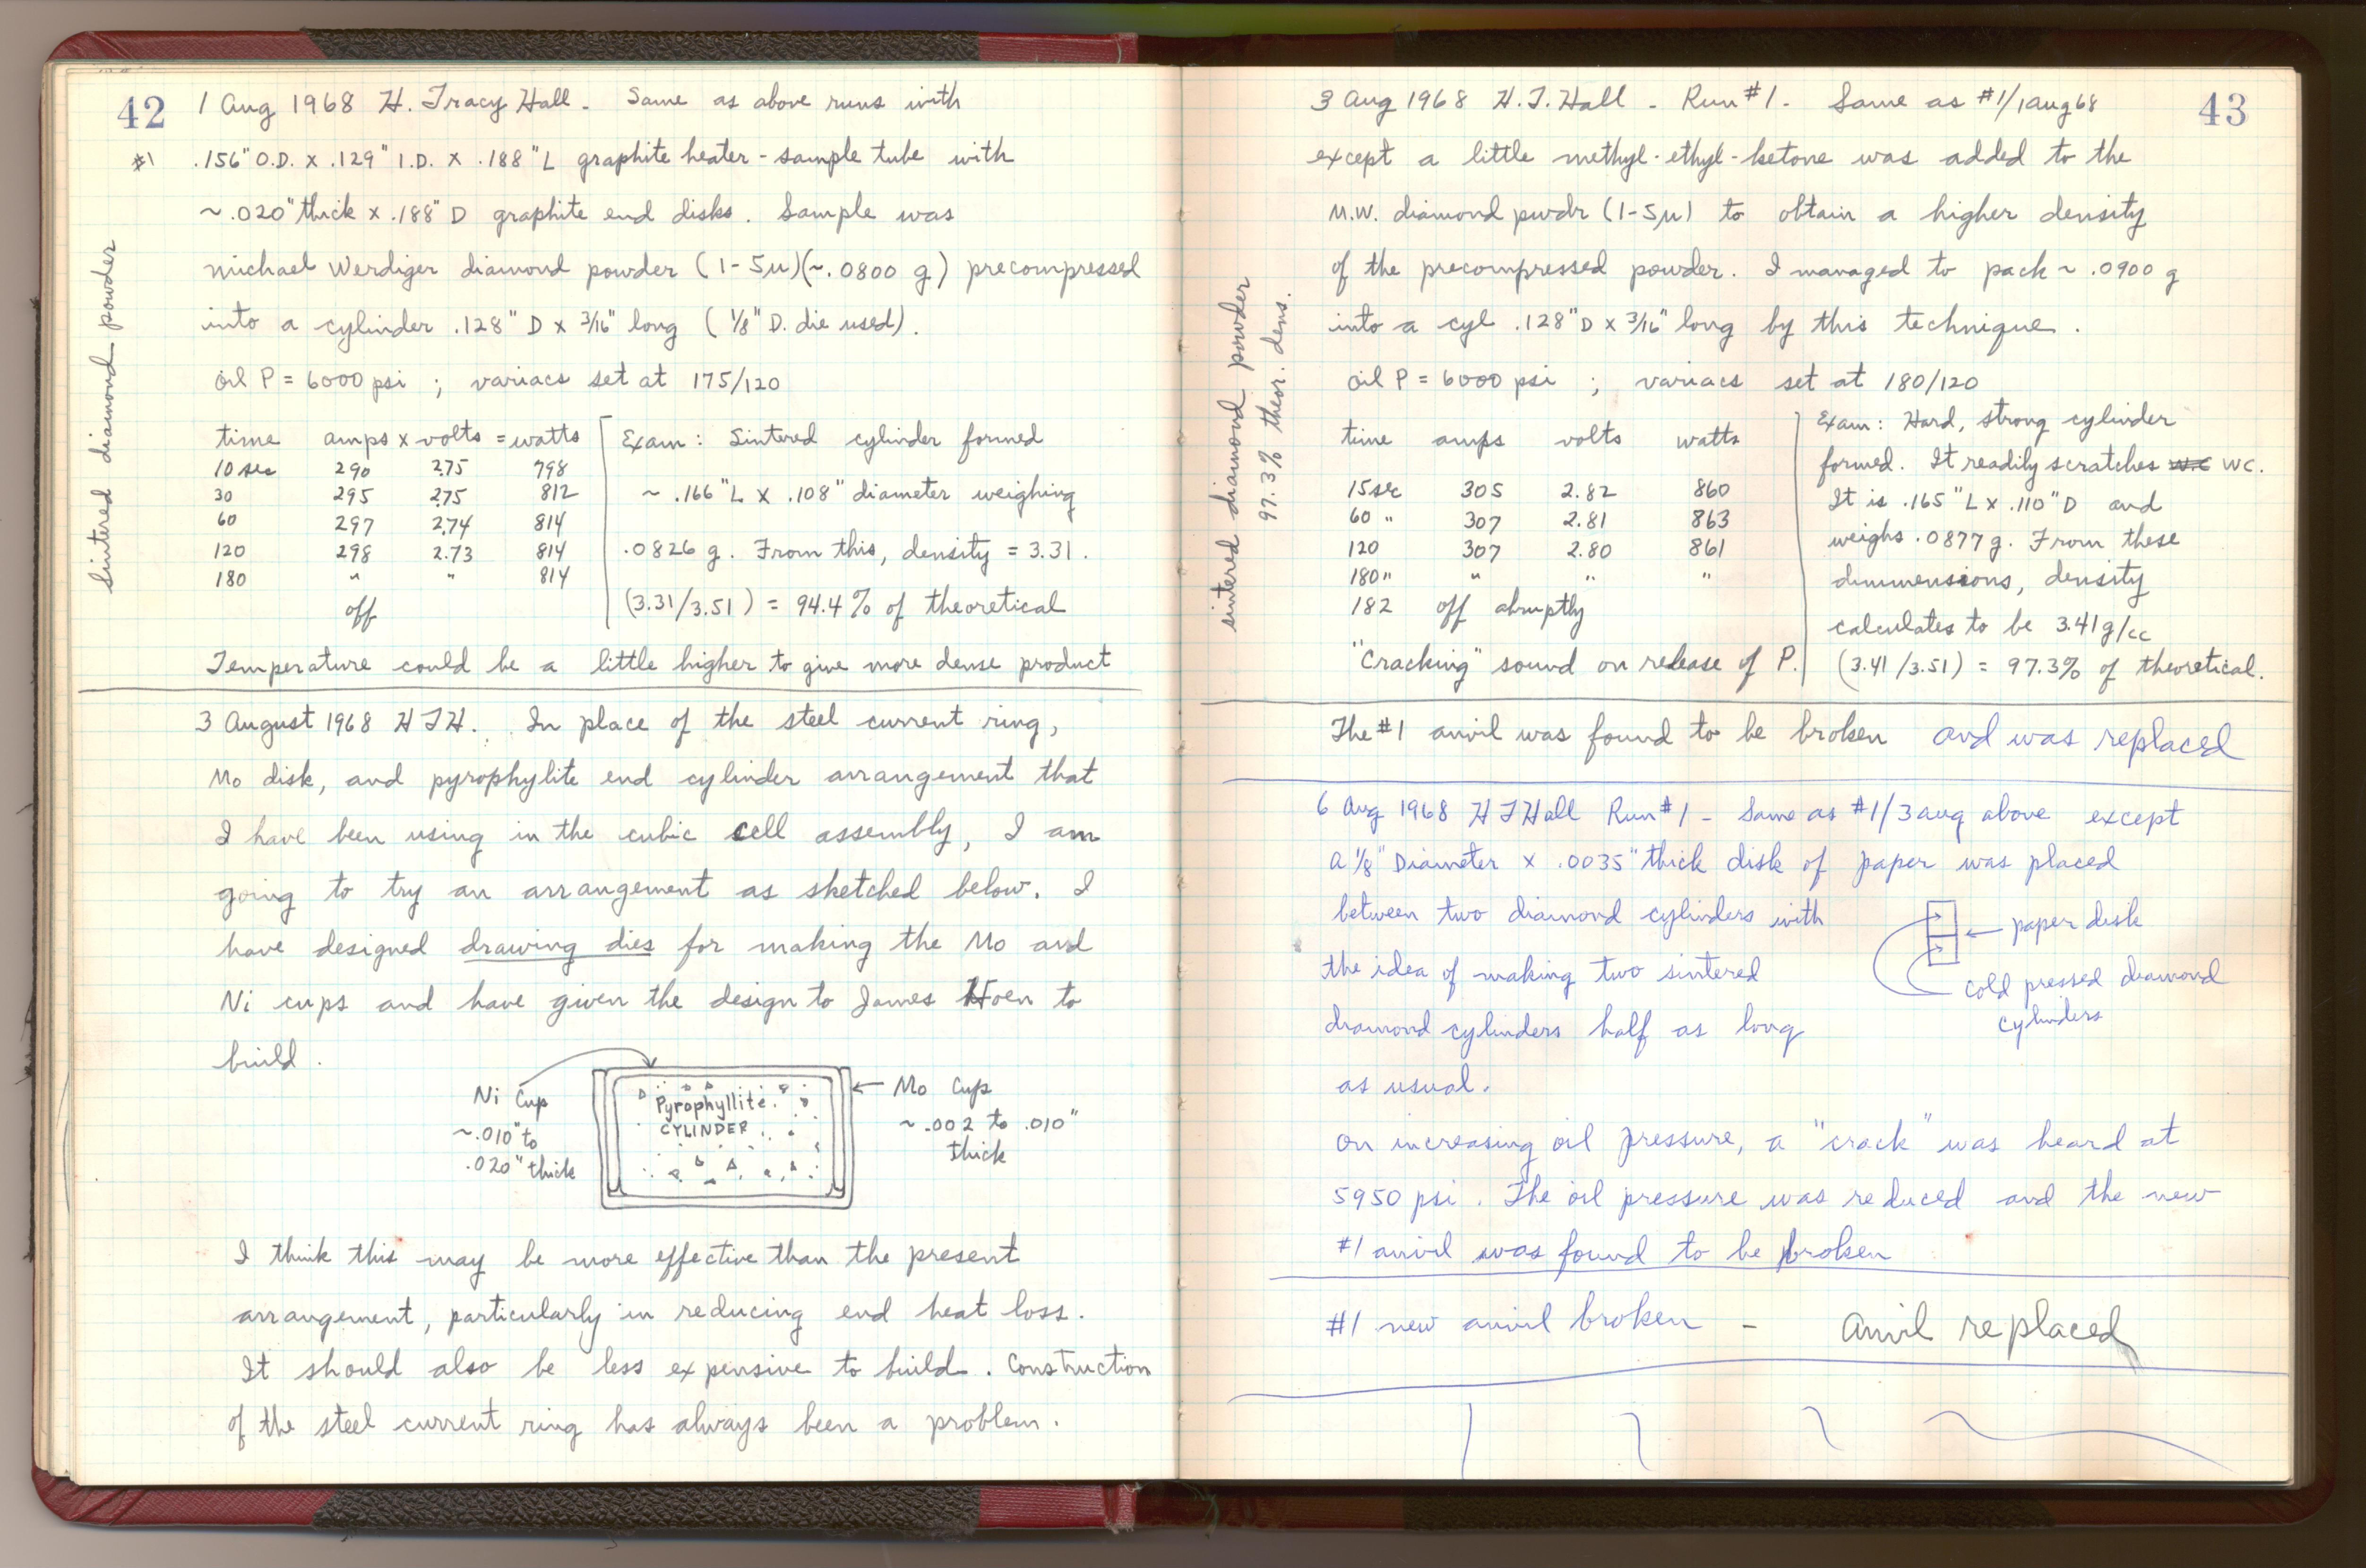 42
1 Aug 1968 H. Tracy Hall - Same as above runs with
#1 .156" O.D. x .129" I.D. x .188" L graphite heater-sample tube with
~.020" thick x .188" D graphite end disks. Sample was
Michael Werdiger diamond powder (1-5μ)(~.0800 g) precompressed
into a cylinder .128" D x 3/16" long (1/8" D. die used).
oil P = 6000 psi ; variacs set at 175/120
time amps x volts = watts
10 sec 290 2.75 798
30 295 2.75 812
60 297 2.74 814
120 298 2.73 814
180 " " 814
off
Exam: Sintered cylinder formed
~ .166" L x .108" diameter weighing
.0826 g. From this, density = 3.31.
(3.31/3.51) = 94.4% of theoretical
Temperature could be a little higher to give more dense product
sintered diamond powder
3 August 1968 HTH. In place of the steel current ring,
Mo disk, and pyrophylite end cylinder arrangement that
I have been using in the cubic cell assembly, I am
going to try an arrangement as sketched below. I
have designed drawing dies for making the Mo and
Ni cups and have given the design to James Hoen to
build.
Ni Cup
~.010" to
.020" thick
Pyrophyllite
CYLINDER
Mo Cup
~ .002 to .010"
thick
I think this may be more effective than the present
arrangement, particularly in reducing end heat loss.
It should also be less expensive to build. Construction
of the steel current ring has always been a problem.
43
3 Aug 1968 H.T. Hall - Run #1 - Same as #1/1 Aug 68
except a little methyl-ethyl-ketone was added to the
M.W. diamond pwdr (1-5μ) to obtain a higher density
of the precompressed powder. I managed to pack ~ .0900 g
into a cyl .128" D x 3/16" long by this technique.
oil P = 6000 psi ; variacs set at 180/120
time amps volts watts
15 sec 305 2.82 860
60 " 307 2.81 863
120 307 2.80 861
180 " " " "
182 off abruptly
"Cracking" sound on release of P.
Exam: Hard, strong cylinder
formed. It readily scratches W.C WC.
It is .165" L x .110" D and
weighs .0877 g. From these
dimmensions, density
calculates to be 3.41 g/cc
(3.41/3.51) = 97.3% of theoretical.
sintered diamond powder
97.3% theor. dens.
The #1 anvil was found to be broken and was replaced
6 Aug 1968 H T Hall Run #1 - Same as #1/3 aug above except
a 1/8" Diameter x .0035" thick disk of paper was placed
between two diamond cylinders with
the idea of making two sintered
diamond cylinders half as long
as usual.
paper disk
cold pressed diamond
cylinders
On increasing oil pressure, a "crack" was heard at
5950 psi. The oil pressure was reduced and the new
#1 anvil was found to be broken
#1 new anvil broken - Anvil replaced